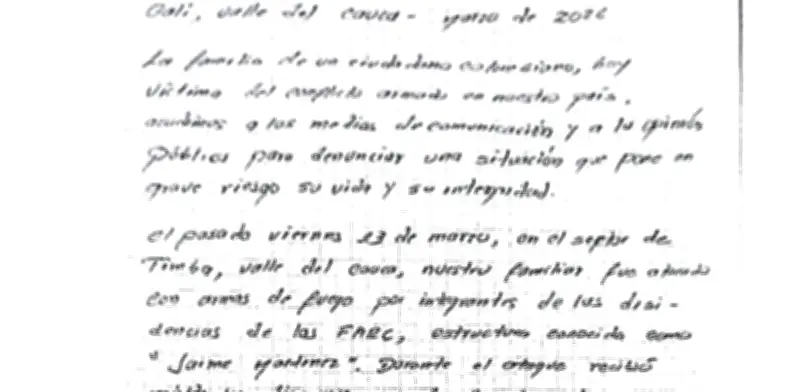 Cali, valle del cauca - marzo de 2026
La familia de un ciudadano colombiano, hoy
víctima del conflicto armado en nuestro país,
acudimos a los medios de comunicación y a la opinión
pública para denunciar una situación que pone en
grave riesgo su vida y su integridad.
El pasado viernes 13 de marzo, en el sector de
Timba, valle del cauca, nuestro familiar fue atacado
con armas de fuego por integrantes de las disi-
dencias de las FARC, estructura conocida como
"Jaime Martinez". Durante el ataque recibió